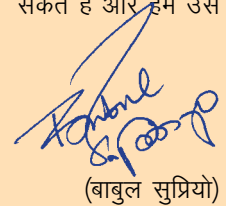 सकते हैं और हम उस
(बाबुल सुप्रियो)